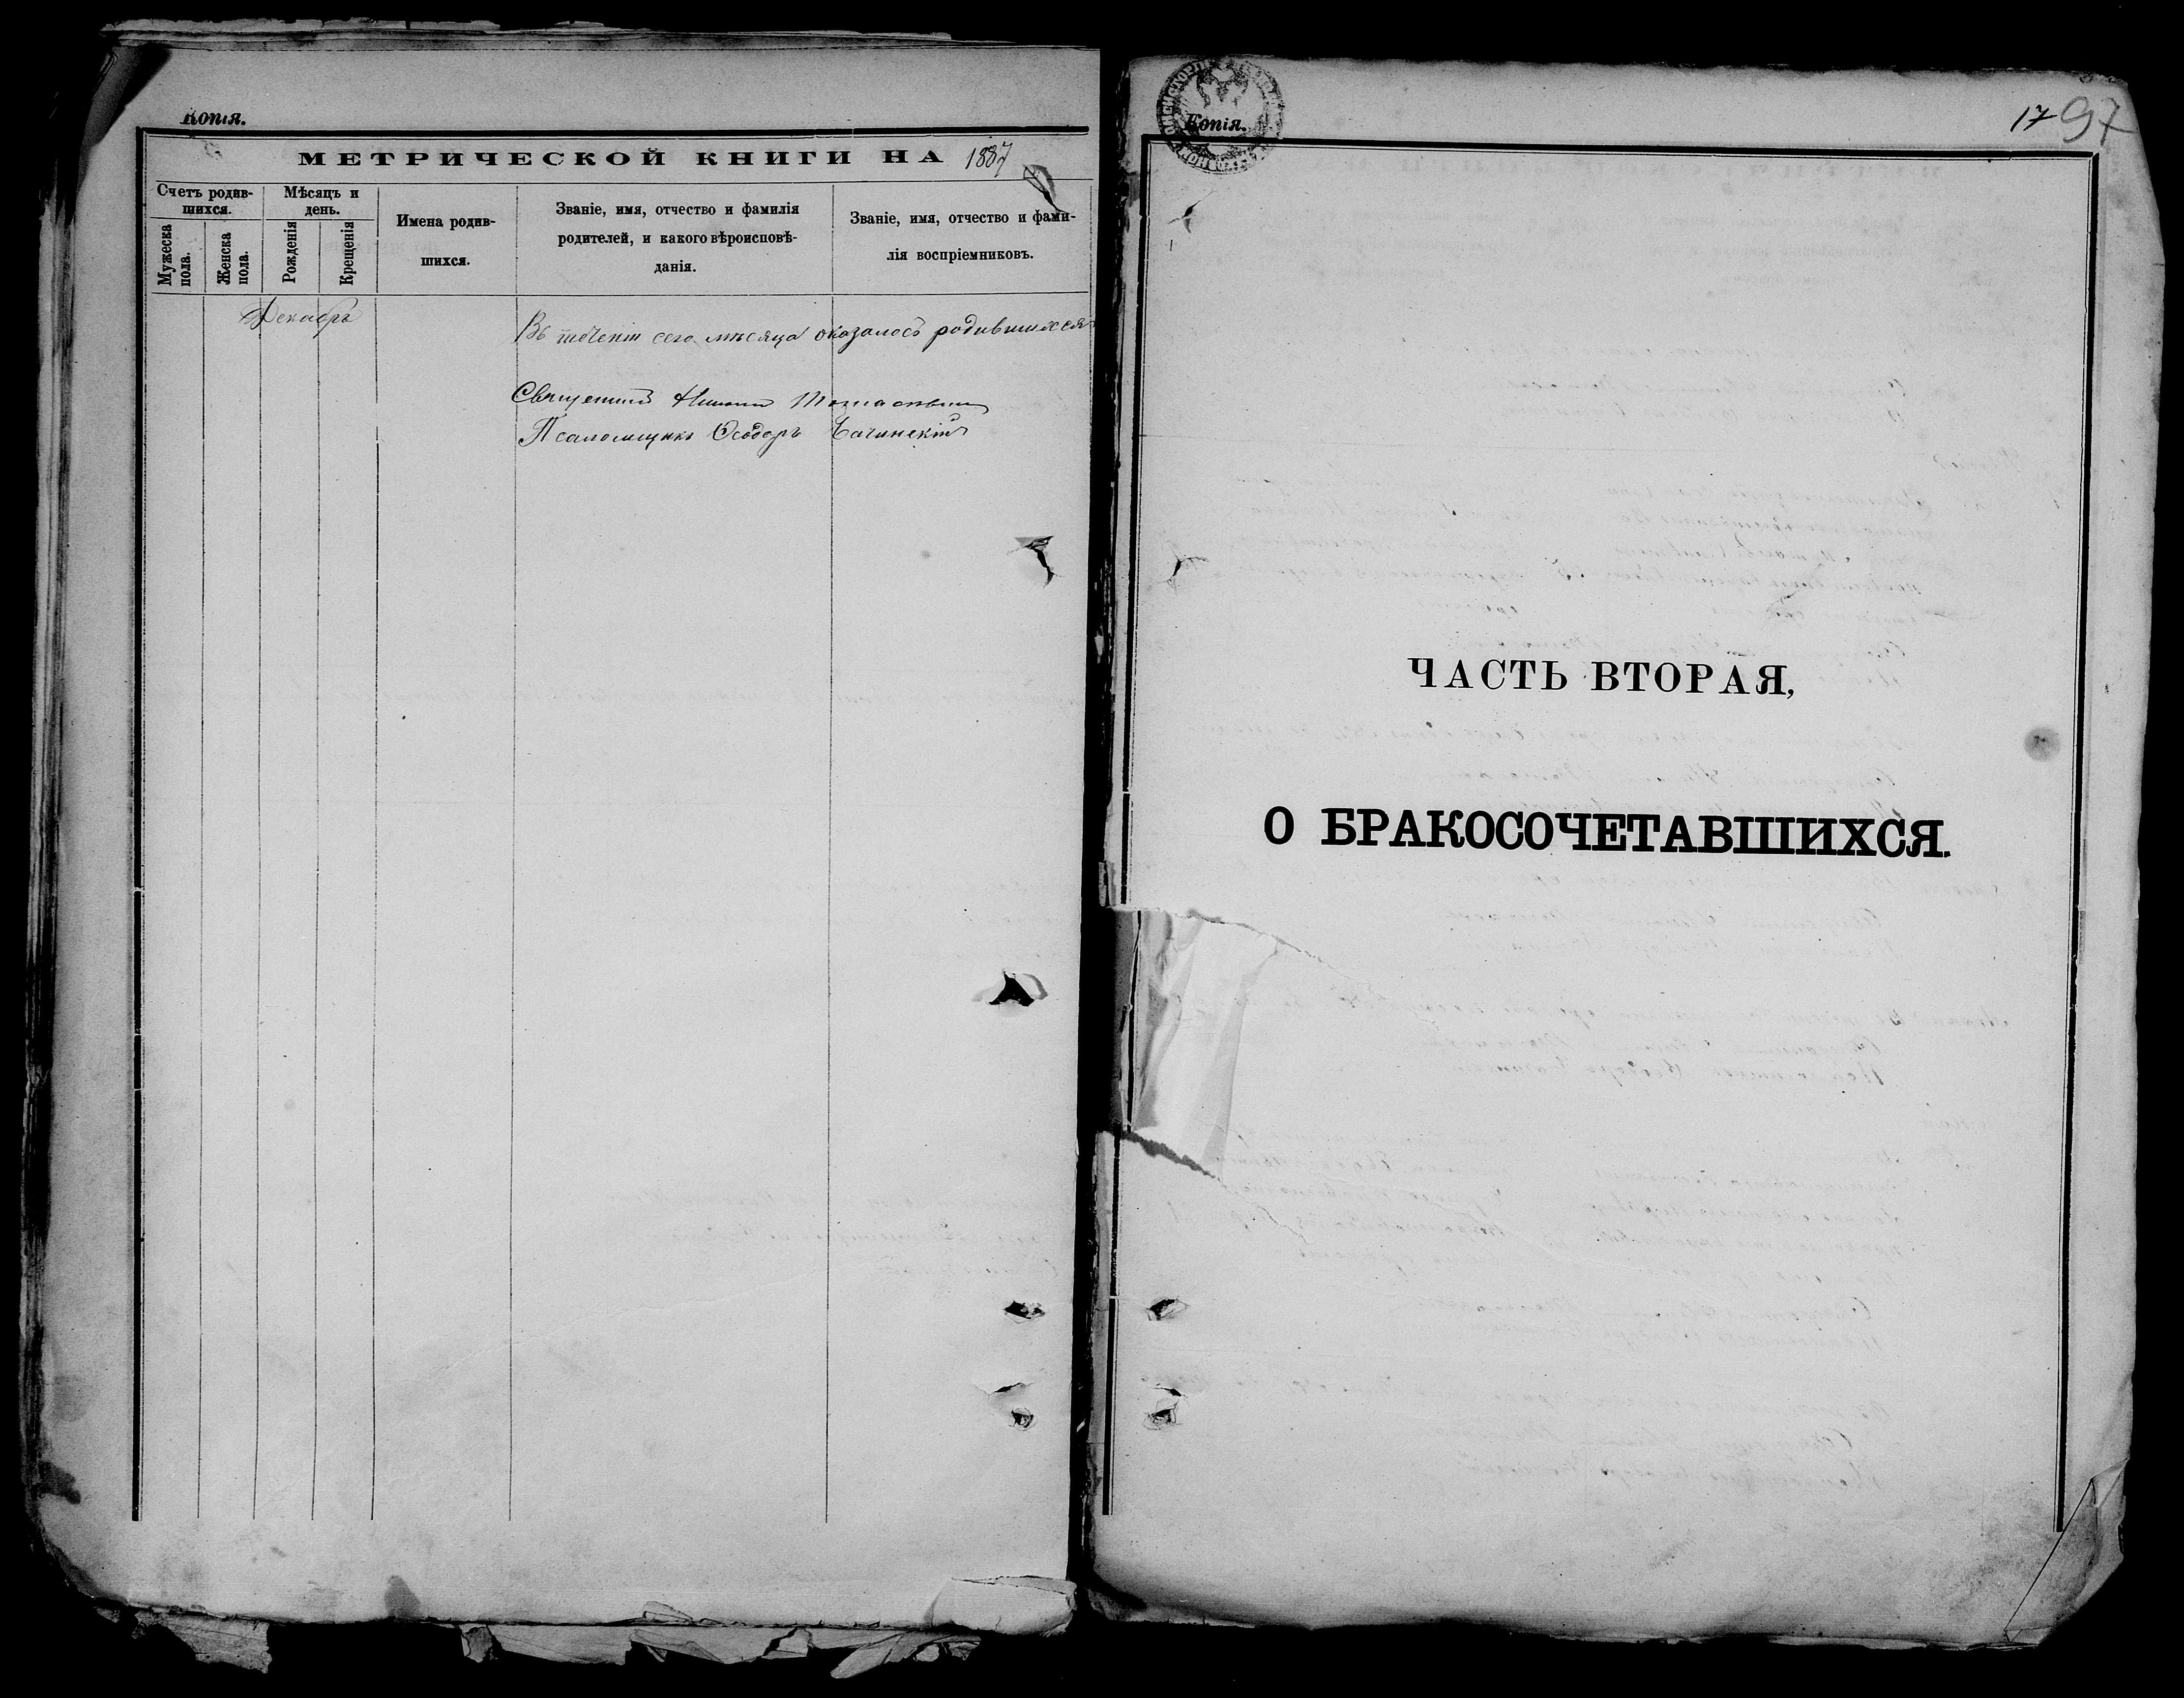 Копія.
МЕТРИЧЕСКОЙ КНИГИ НА 1887
Счетъ родив-
шихся.
Мѣсяцъ и
день.
Мужеска
пола.
Женска
пола.
Рожденія
Крещенія
Имена родив-
шихся.
Званіе, имя, отчество и фамилія
родителей, и какого вѣроисповѣ-
данія.
Званіе, имя, отчество и фами-
лія воспріемниковъ.
Декабрь
Въ теченіи сего мѣсяца оказалось родившихся
Священникъ
Псаломщикъ Ѳеодоръ Бачинскій
Копія.
17 97
ЧАСТЬ ВТОРАЯ,
О БРАКОСОЧЕТАВШИХСЯ.